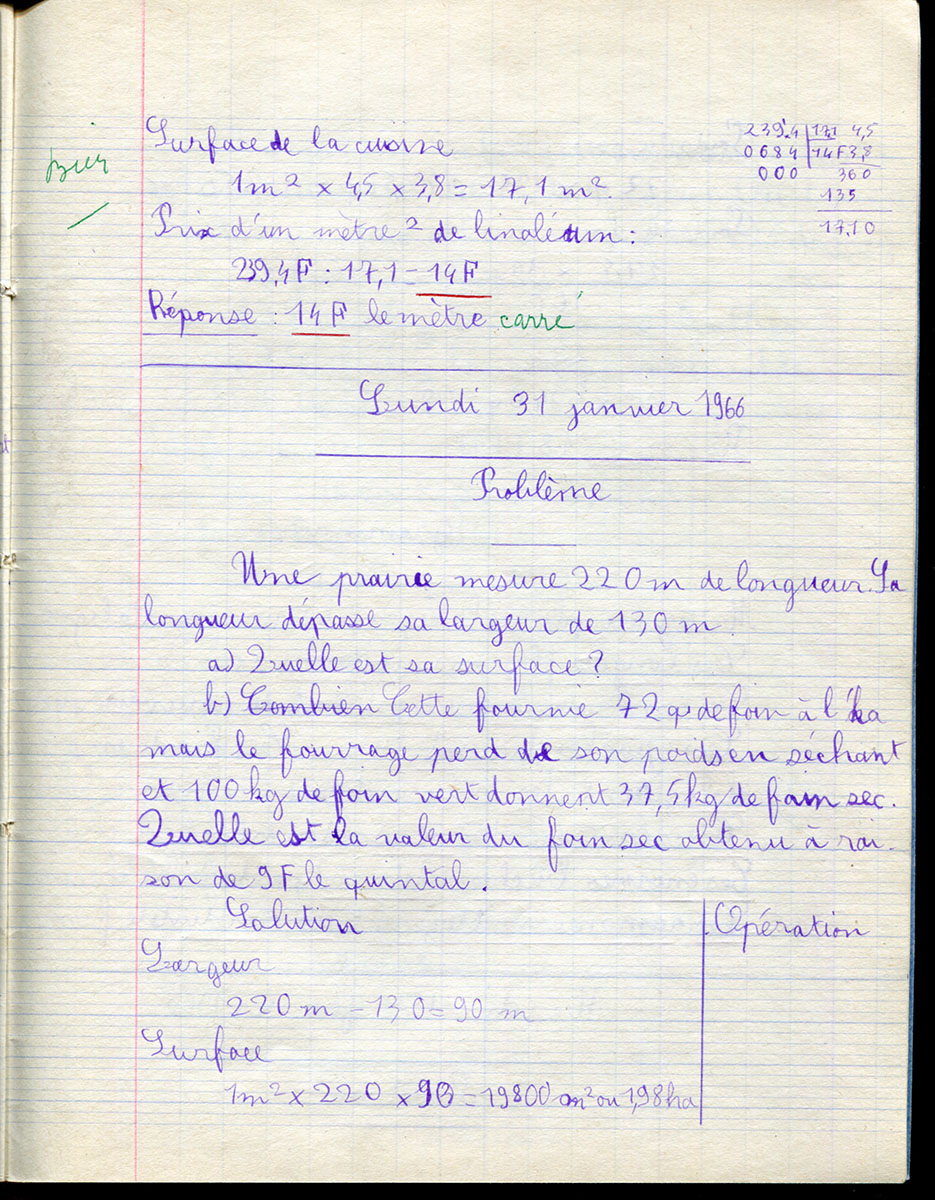 Bien
Surface de la cuisine
1m² × 4,5 × 3,8 = 17,1 m².
Prix d'un mètre² de linoléum :
239,4F : 17,1 = 14F
Réponse : 14F le mètre carré
239,4 | 17,1 4,5
0684 | 14F 3,8
000 360
135
17,10
Lundi 31 janvier 1966
Problème
Une prairie mesure 220m de longueur. Sa
longueur dépasse sa largeur de 130 m.
a) Quelle est sa surface ?
b) Combien Cette fournie 72 q de foin à l'ha
mais le fourrage perd de son poids en séchant
et 100kg de foin vert donnent 37,5kg de foin sec.
Quelle est la valeur du foin sec obtenu à rai-
son de 9F le quintal.
Solution
Opération
Largeur
220m - 130 = 90 m
Surface
1m² × 220 × 90 = 19800 m² ou 1,98ha